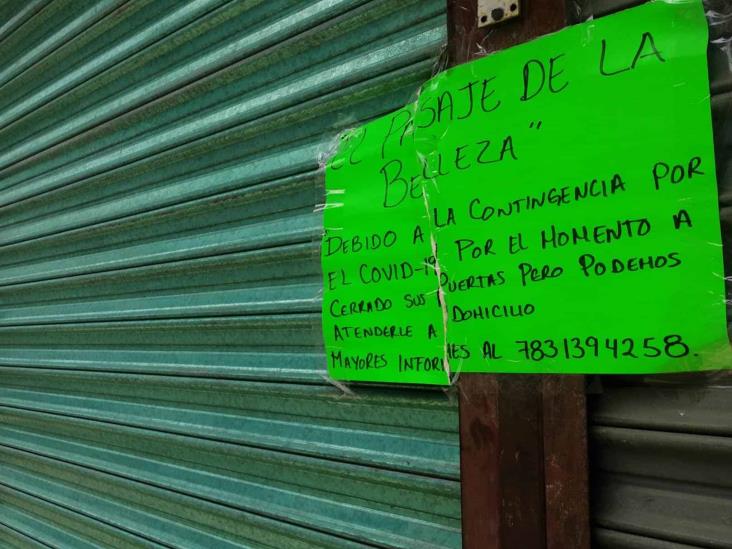 "El PASAJE DE LA
BELLEZA"
DEBIDO A LA CONTINGENCIA POR
EL COVID-19 POR EL MOMENTO A
CERRADO SUS PUERTAS PERO PODEMOS
ATENDERLE A DOMICILIO
MAYORES INFORMES AL 7831394258.